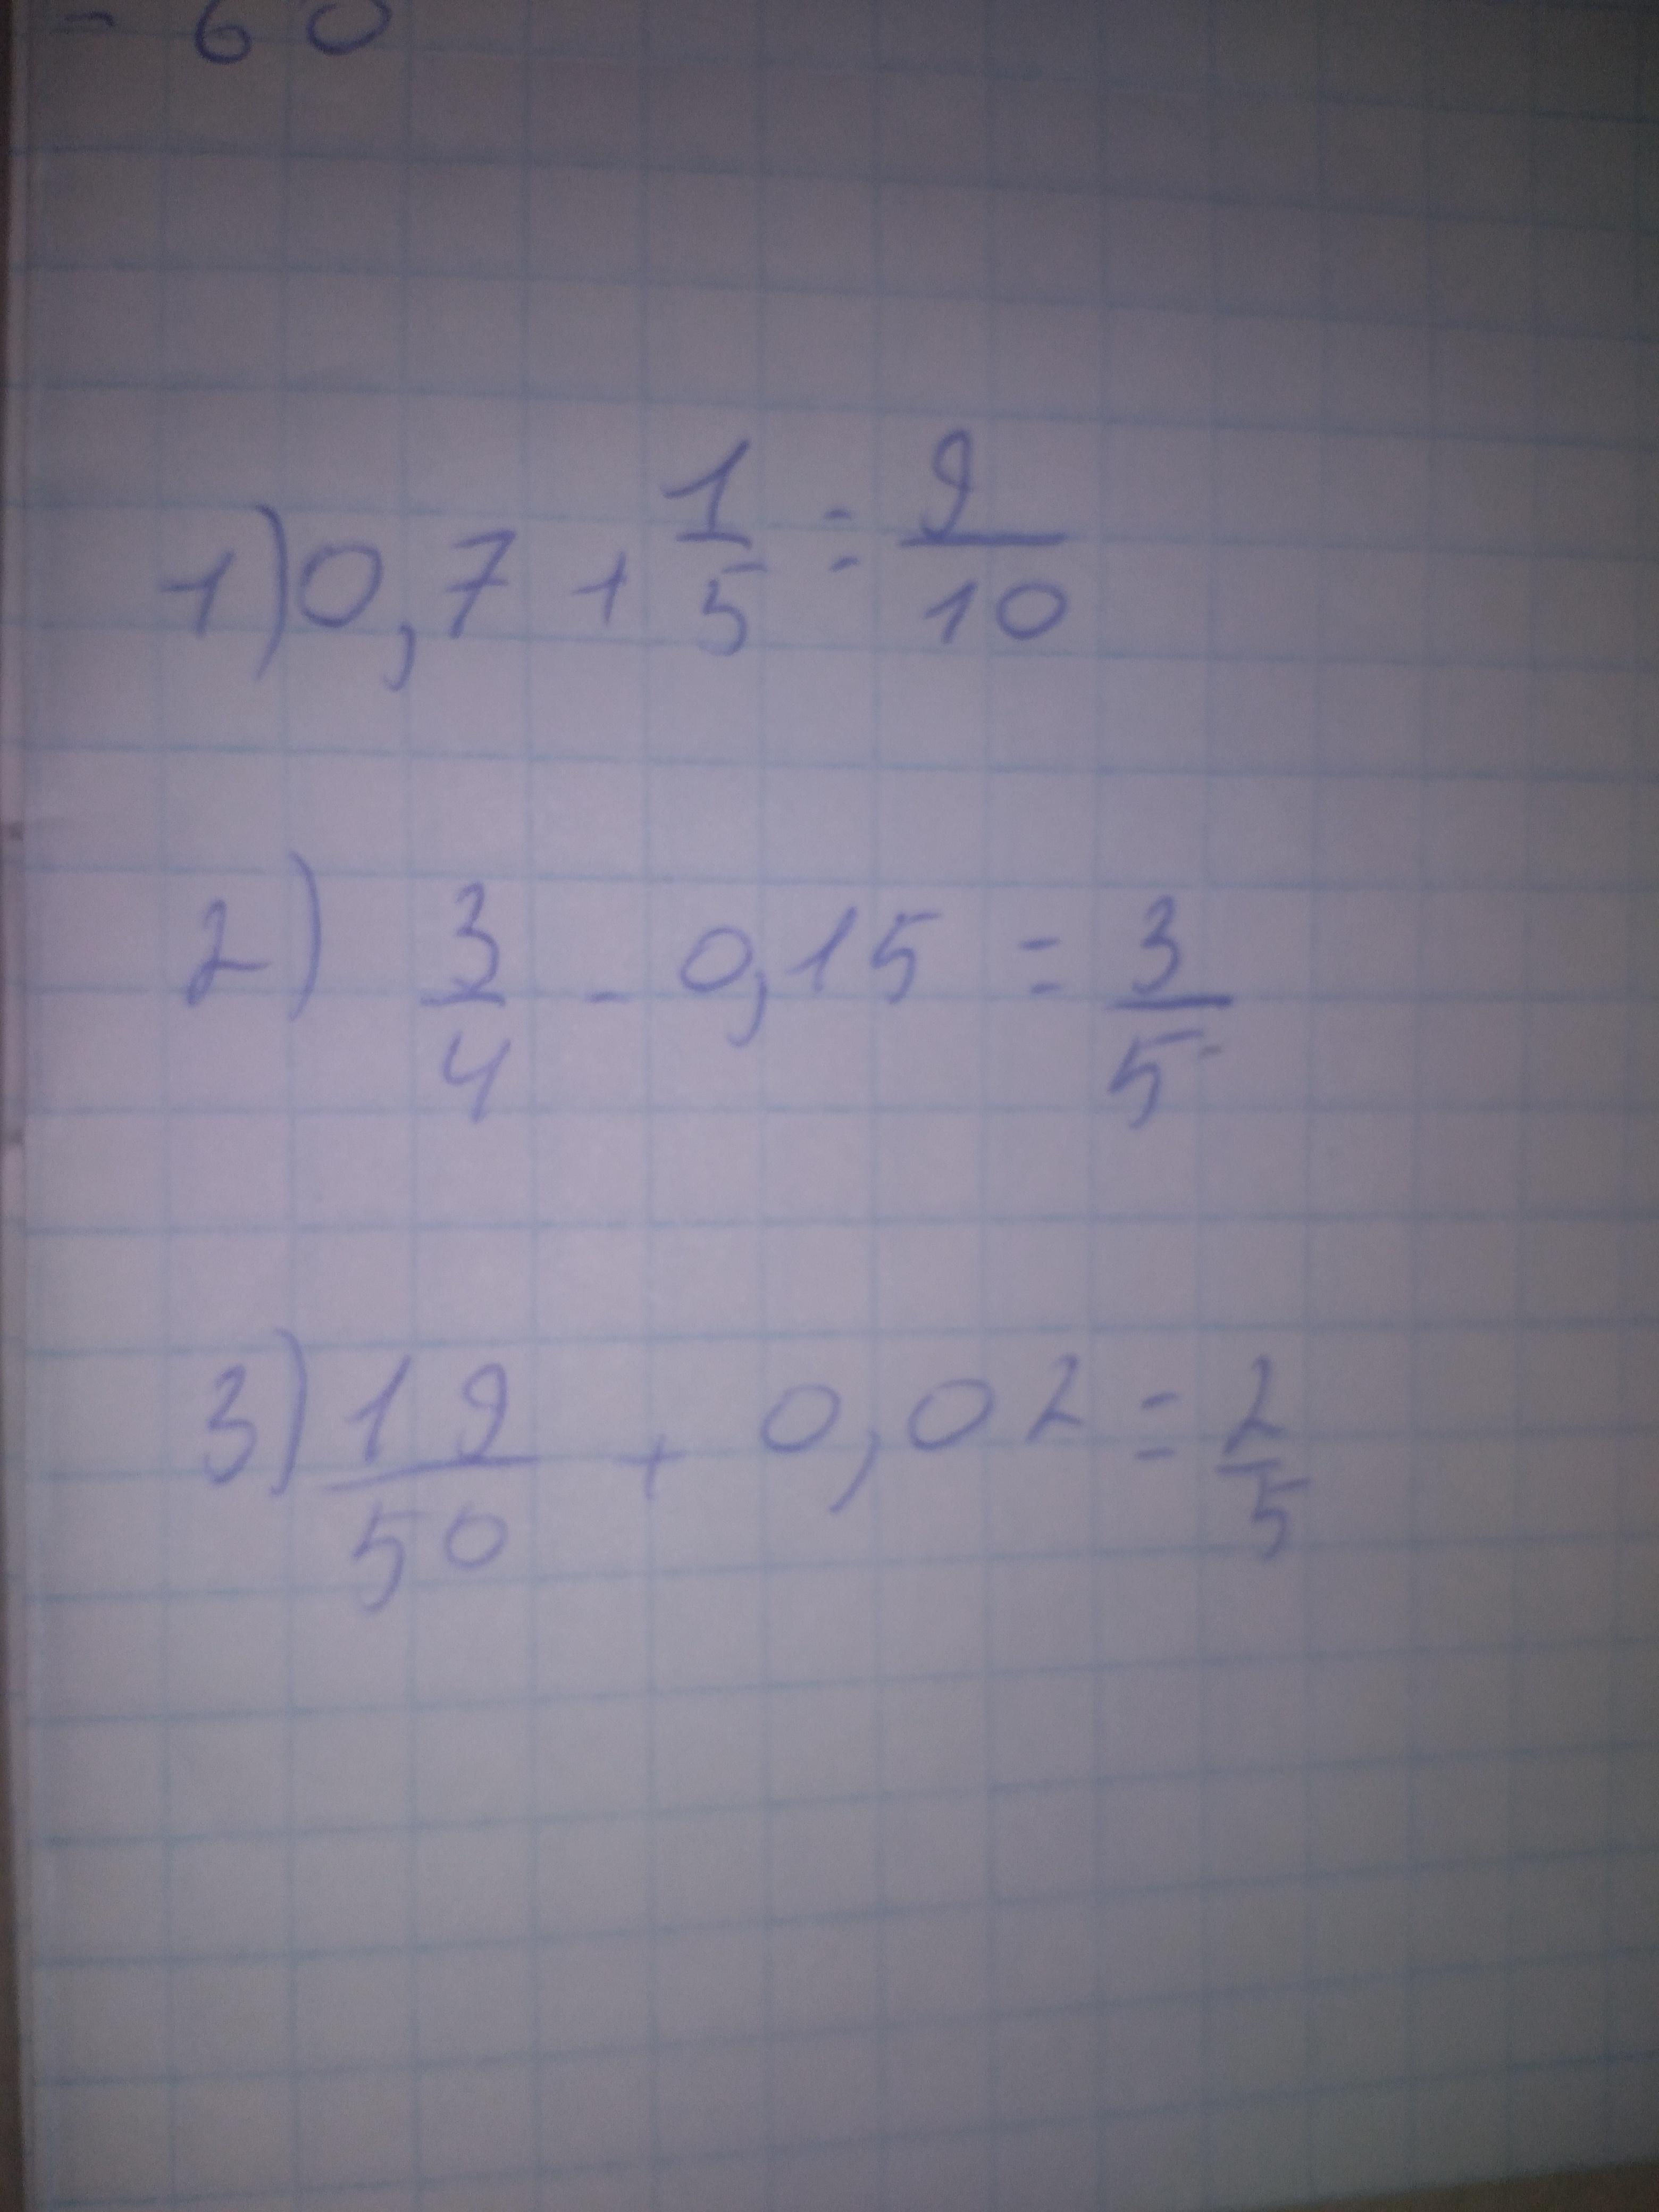 - 60
1) 0,7 + 1/5 = 9/10
2) 3/4 - 0,15 = 3/5
3) 19/50 + 0,02 = 2/5